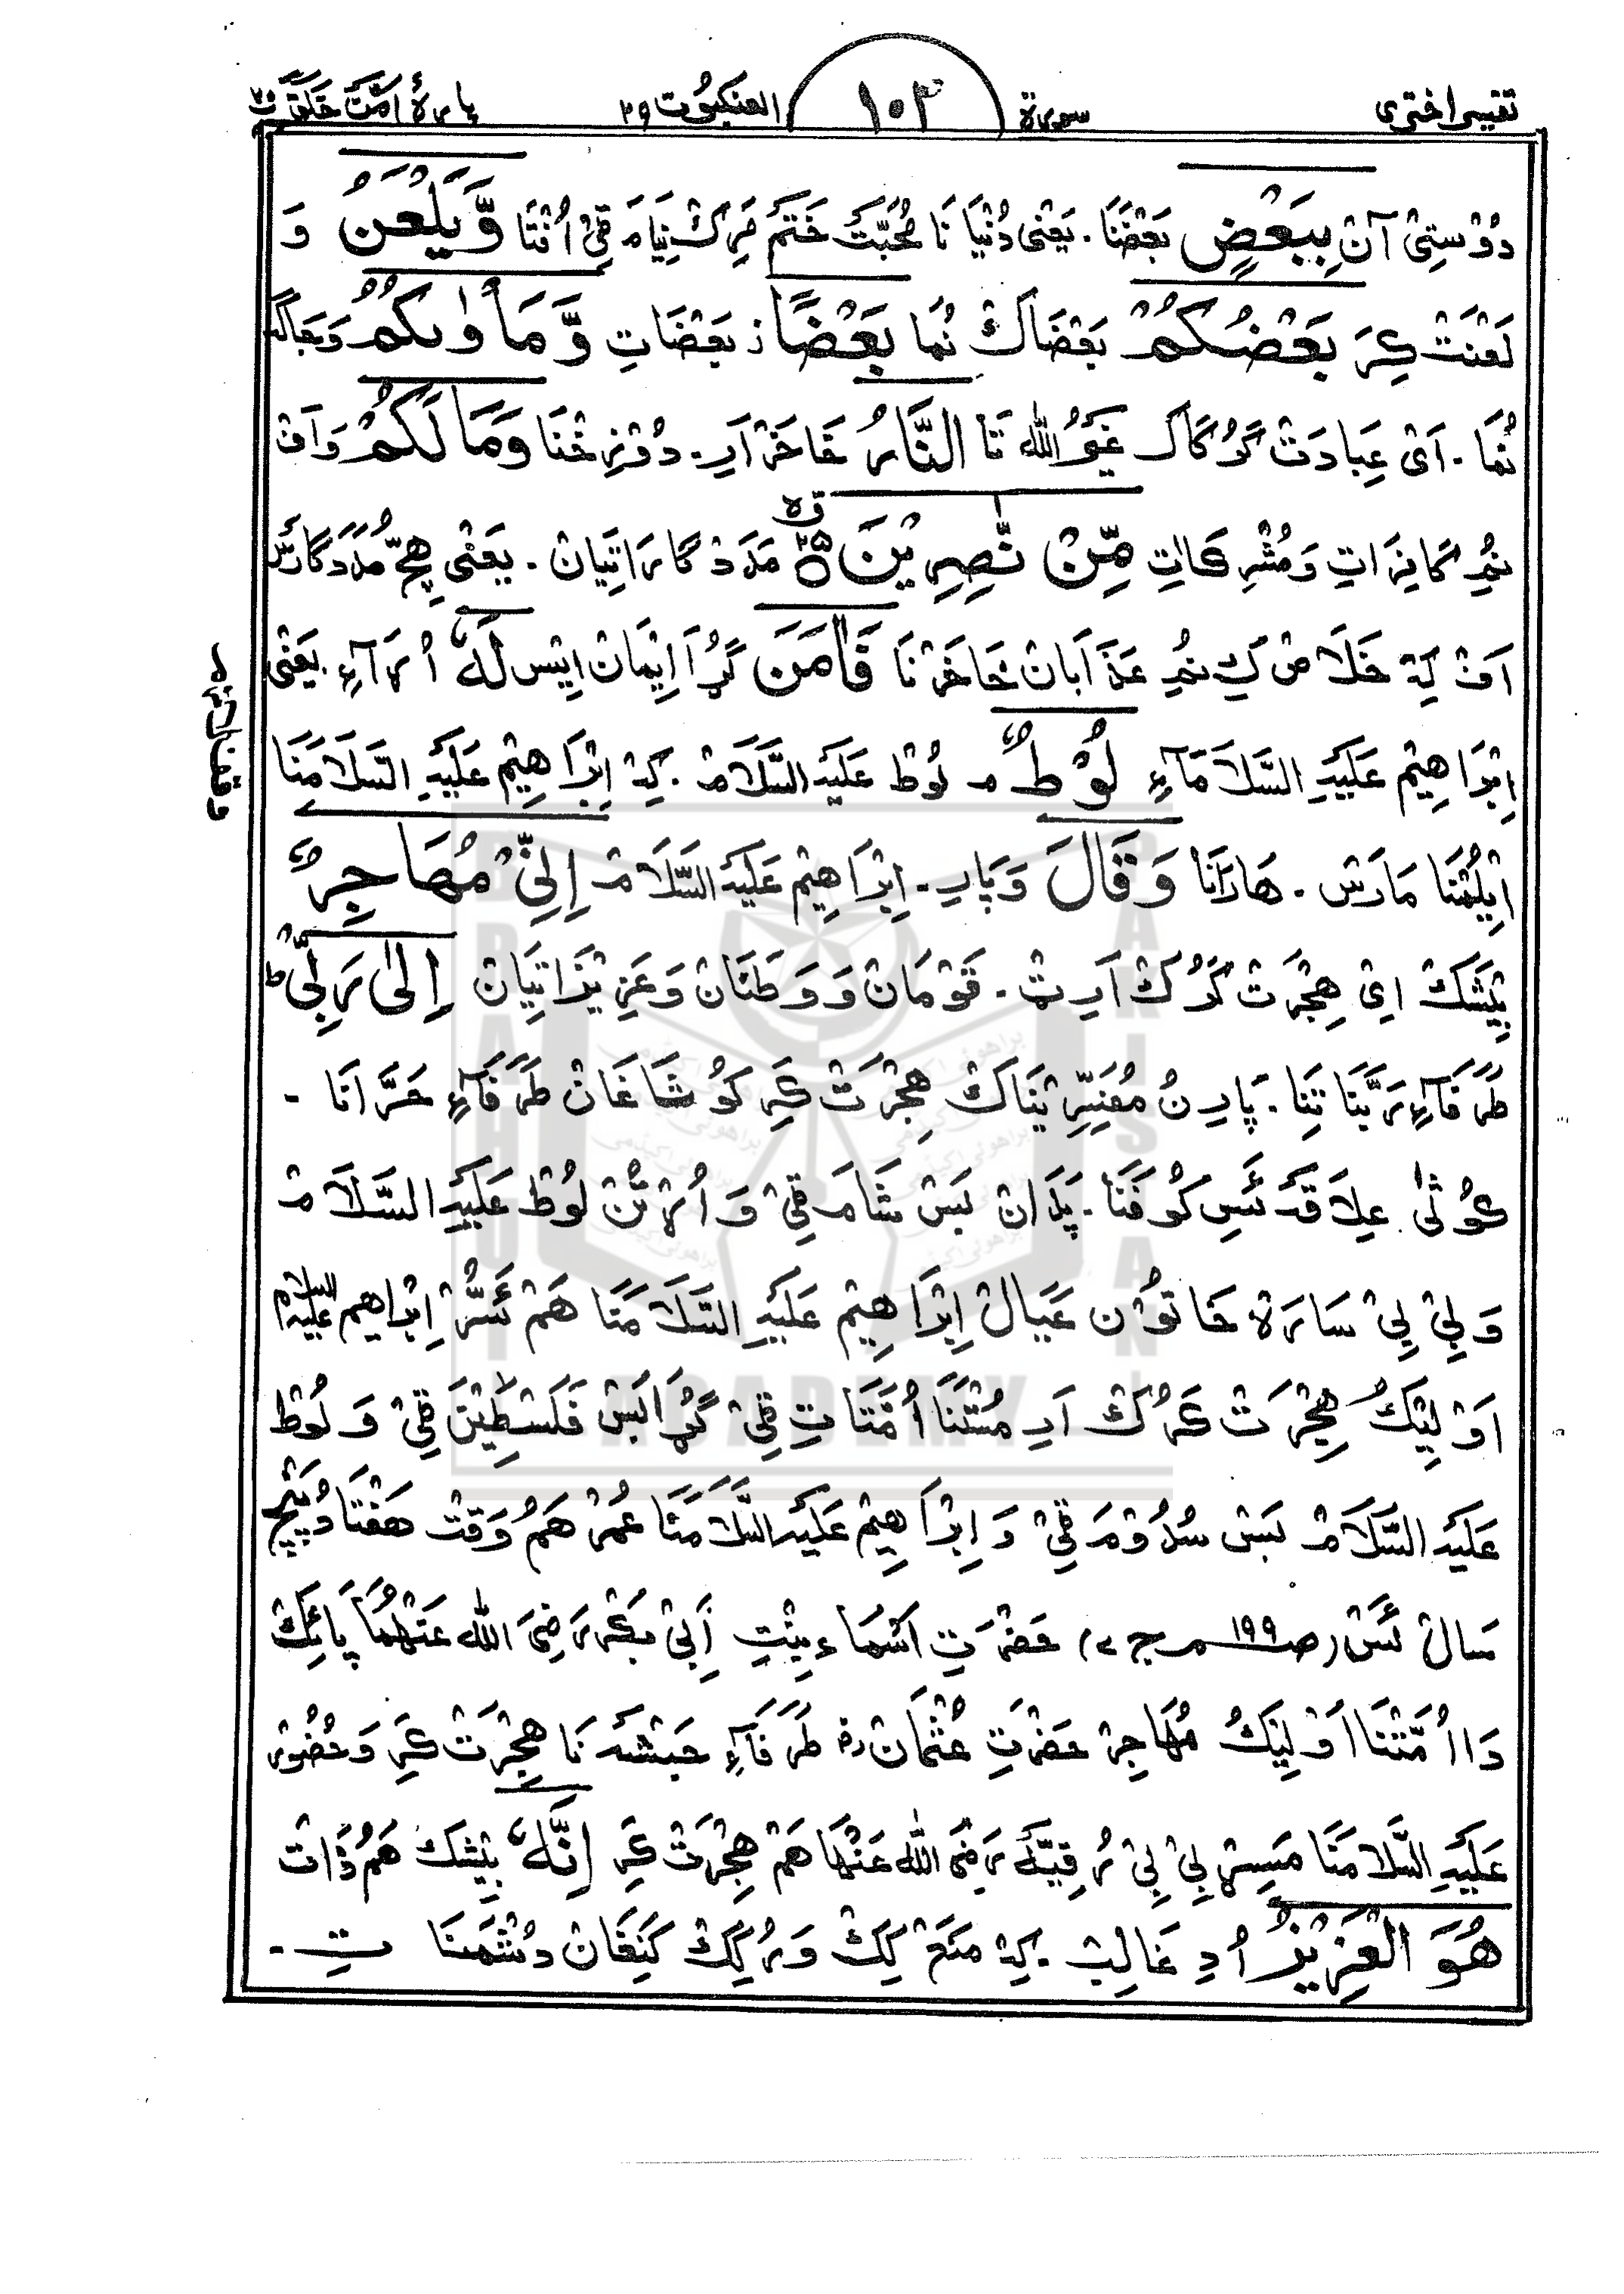 تفسیر اختری سورة ۱۰۳ العنکبوت ۲۹ پارۀ امّن خلق ۲۰
دُوْستِیْ آنْ بِبَعْضٍ بَعْضَنَا. یَعْنِی دُنْیَا نَا مُحَبَّتْ خَتَمْ مَرِکْ نِیَامَ قِیْ اُفْتَا وَّیَلْعَنُ وَ
لَعْنَتْ کِرَ بَعْضُکُمْ بَعْضَاکْ نُمَا بَعْضًا ز بَعْضَاتِ وَّمَاْوٰىکُمُ وَجَاگَہ
نُمَا. اَیْ عِبَادَتْ کَرُکَاکْ غَیْرُ اللّٰه تَا النَّارُ خَاخَرْ اَرِ. دُوْزَخْنَا وَمَا لَکُمْ وَاَفْ
نُمِ کَافِرَاتِ وَمُشْرِکَاتِ مِّنْ نّٰصِرِیْنَ ۲۵ مَدَدْ گَارَاتِیَانْ. یَعْنِی هِچّ مَدَدگَارَسْ
اَفْ کِہ خَلَاصْ کِ نُمِ عَذَابَانْ خَاخَرْنَا فَاٰمَنَ گُڑَا اِیْمَانْ اِیْس لَهٗ اُرَآءِ یَعْنِیْ
اِبْرَاهِیْم عَلَیْہِ السَّلَامَآءِ لُوْطٌ م لُوْط عَلَیْہ السَّلَامْ. کِہ اِبْرَاهِیْم عَلَیْہِ السَّلَامْنَا
اِیْلُمْنَا مَارَسْ. هَارَانَا وَقَالَ وَپَارِ. اِبْرَاهِیْم عَلَیْہ السَّلَامْ اِنِّیْ مُهَاجِرٌ
بِیْشَکْ اِیْ هِجْرَتْ کَرُکْ اَرِیْٹ. قَوْمَانْ وَ وَطَنَانْ وَعَزِیْزَاتِیَانْ اِلٰی رَبِّیْ ط
طَرَفَآءِ رَبَّنَا تَنِنَا. پَارِنُ مُفَسِّرِیْنَاکْ هِجْرَتْ کَرِ کُوْشَاغَانْ طَرَفَآءِ حَرَّانَا -
کُوْثٰی عِلَاقَہ ئَسِ کُوْفَنَا. پَدَانْ بَسْ شَامَ قِیْ وَ اُرْتُنْ لُوْط عَلَیْہِ السَّلَامْ
وَبِیْ بِیْ سَارَہ خَاتُوْن عَیَالْ اِبْرَاهِیْم عَلَیْہِ السَّلَامْنَا هَمْ ئَسُّرْ اِبْرَاهِیم عَلَیْہ السلام
اَوْلِیْکُ هِجْرَتْ کَرُکْ اَرِ مُسْتَنَا اُمَّتَاتِ قِیْ گُڑَا بَسْ فَلَسْطِیْنَ قِیْ وَ لُوْط
عَلَیْہ السَّلَامْ بَسْ سُدُوْمَ قِیْ وَ اِبْرَاهِیْم عَلَیْہ السَّلَامْنَا عُمْرْ هَمُ وَقْتْ هَفْتَادُ پَنْچ
سَالْ ئَسْ (صـ۱۹۹ـ م ج ۷) حَضْرَتِ اَسْمَاء بِنْتِ اَبِیْ بَکْر رَضِیَ اللّٰه عَنْهُمَا پَائِکْ
دَا اُمَّتْنَا اَوْلِیْکُ مُهَاجِرْ حَضْرَتِ عُثْمَانْ رض طَرَفَآءِ حَبْشَہ نَا هِجْرَتْ کَرِ وَحُضُوْر
عَلَیْہِ السَّلَامْنَا مَسِڑ بِیْ بِیْ رُقِیَّہ رَضِیَ اللّٰه عَنْهَا هَمْ هِجْرَتْ کَرِ اِنَّهٗ بِیْشَکْ هَمُ ذَاتْ
هُوَ الْعَزِیْزُ اُدِ غَالِبْ. کِہ مَنَعْ کِکْ وَرُکِکْ کَنِغَانْ دُشْمَنَاتِ -